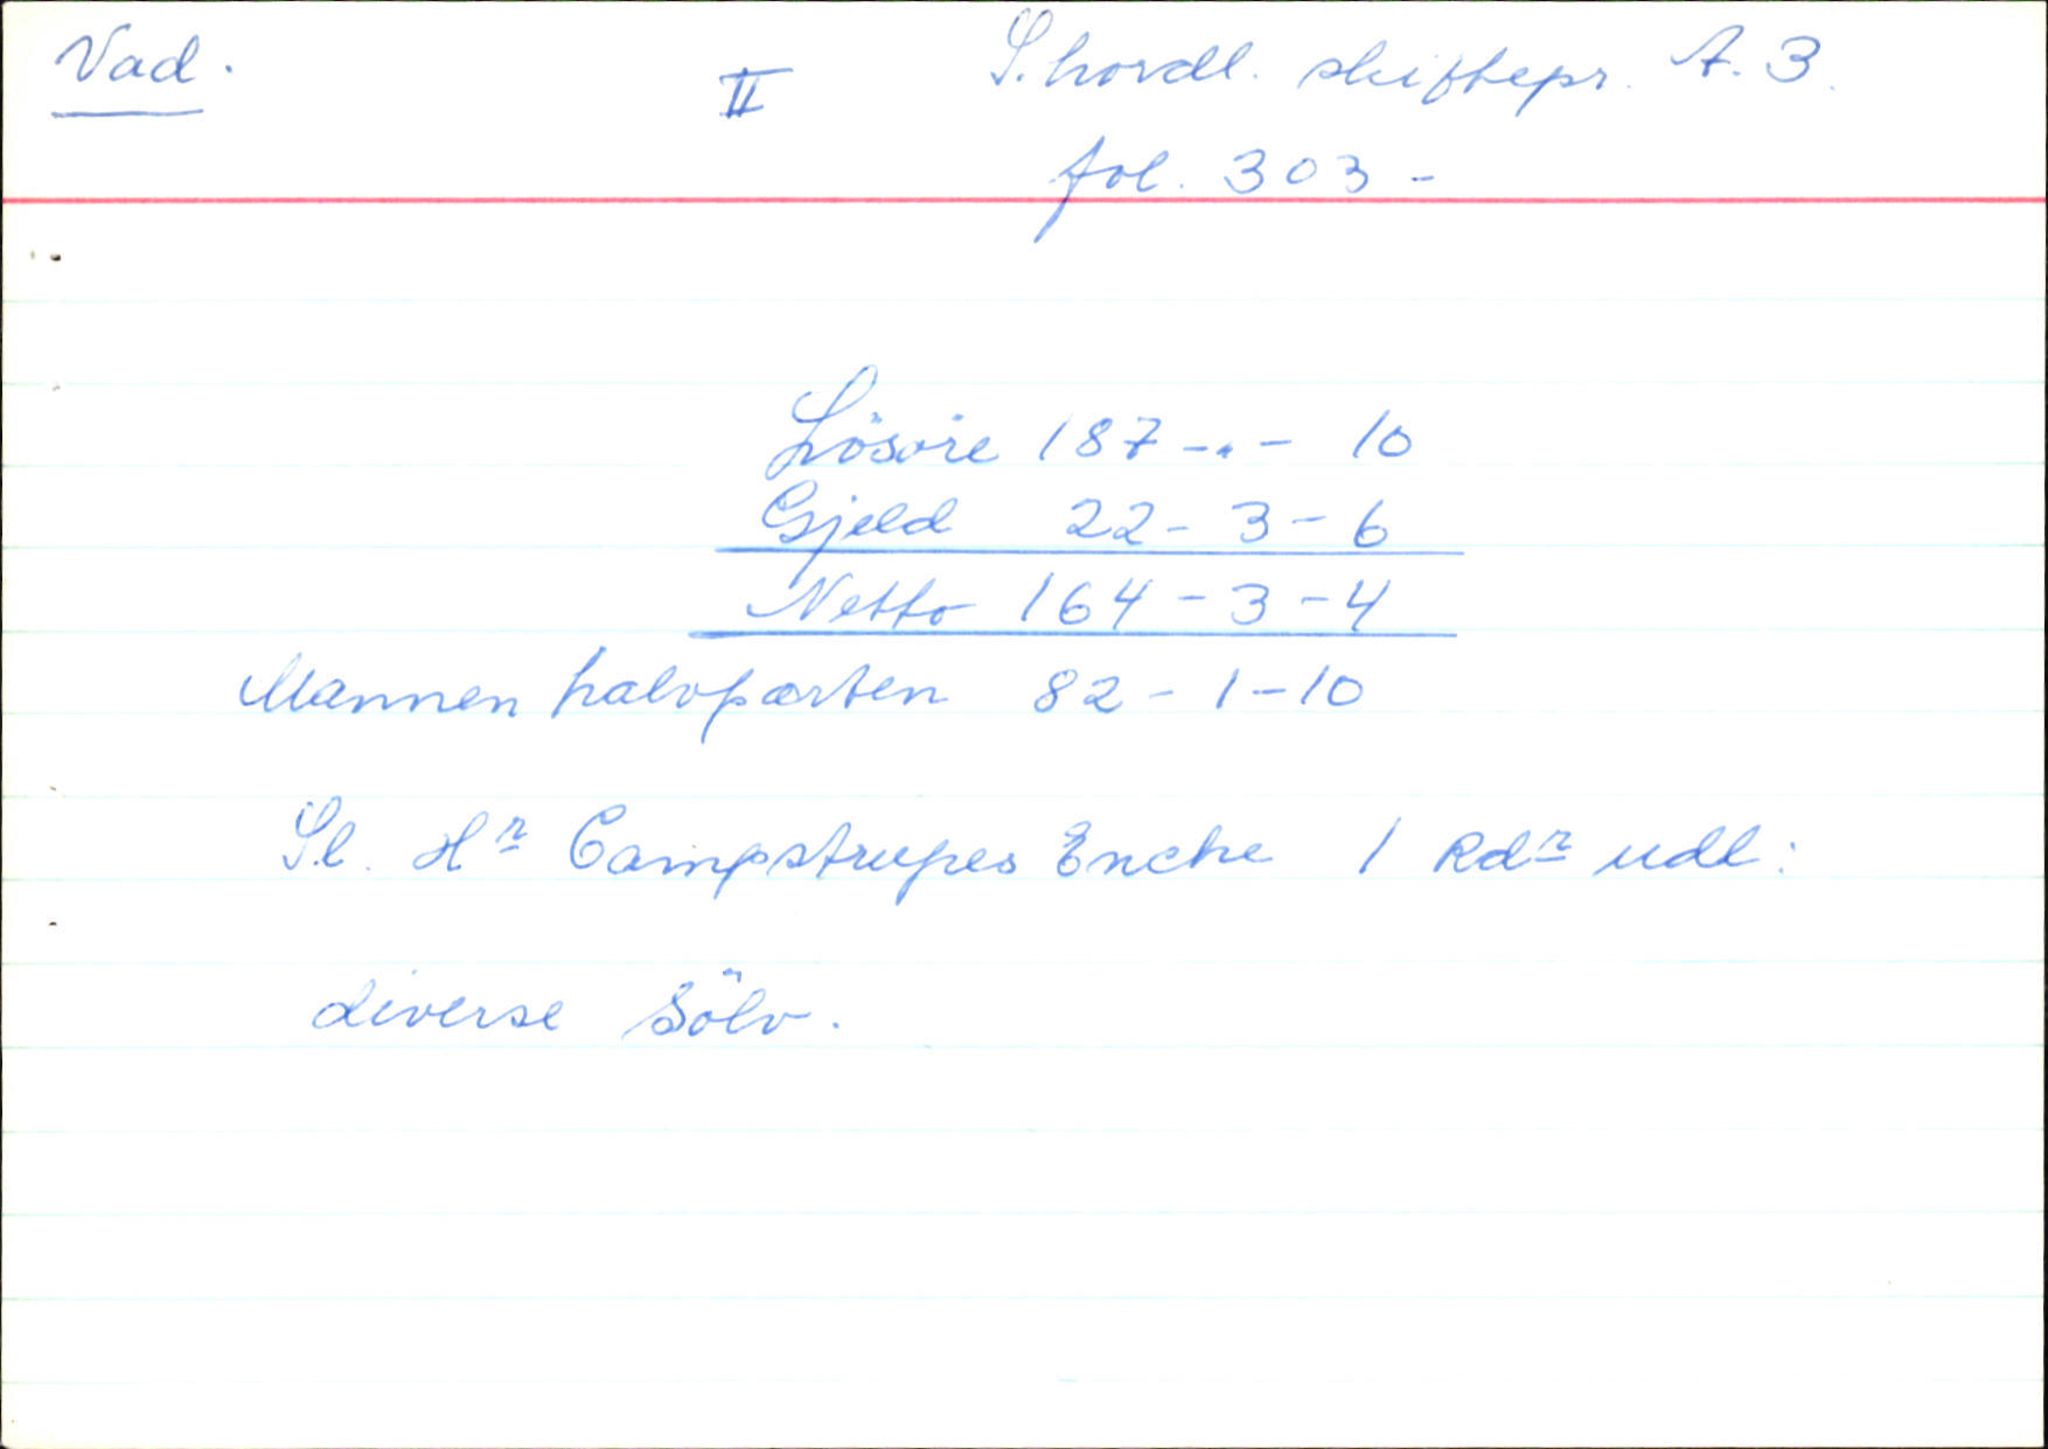 Vad.
II
S.hordl. skiftepr. A. 3.
fol. 303 -
Lösöre 187 - " - 10
Gjeld 22 - 3 - 6
Netto 164 - 3 - 4
Mannen halvparten 82 - 1 - 10
Sl. Hr Campstrupes Enche 1 Rdr udl:
diverse sölv.